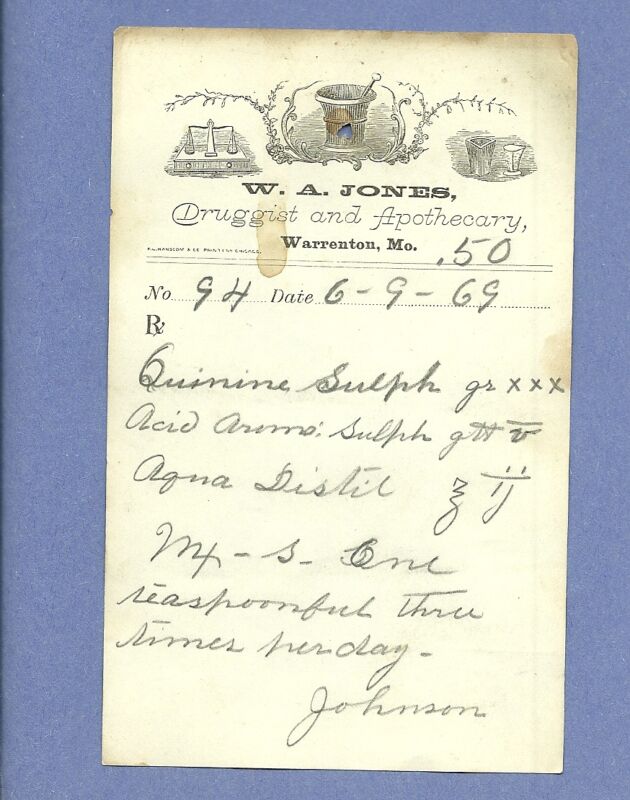 W. A. JONES,
Druggist and Apothecary,
Warrenton, Mo.
.50
No 94 Date 6-9-69
℞
Quinine Sulph gr xxx
Acid Arom: Sulph gtt v
Aqua Distil ℥ ij
Mx - S - One
teaspoonful three
times per day -
Johnson